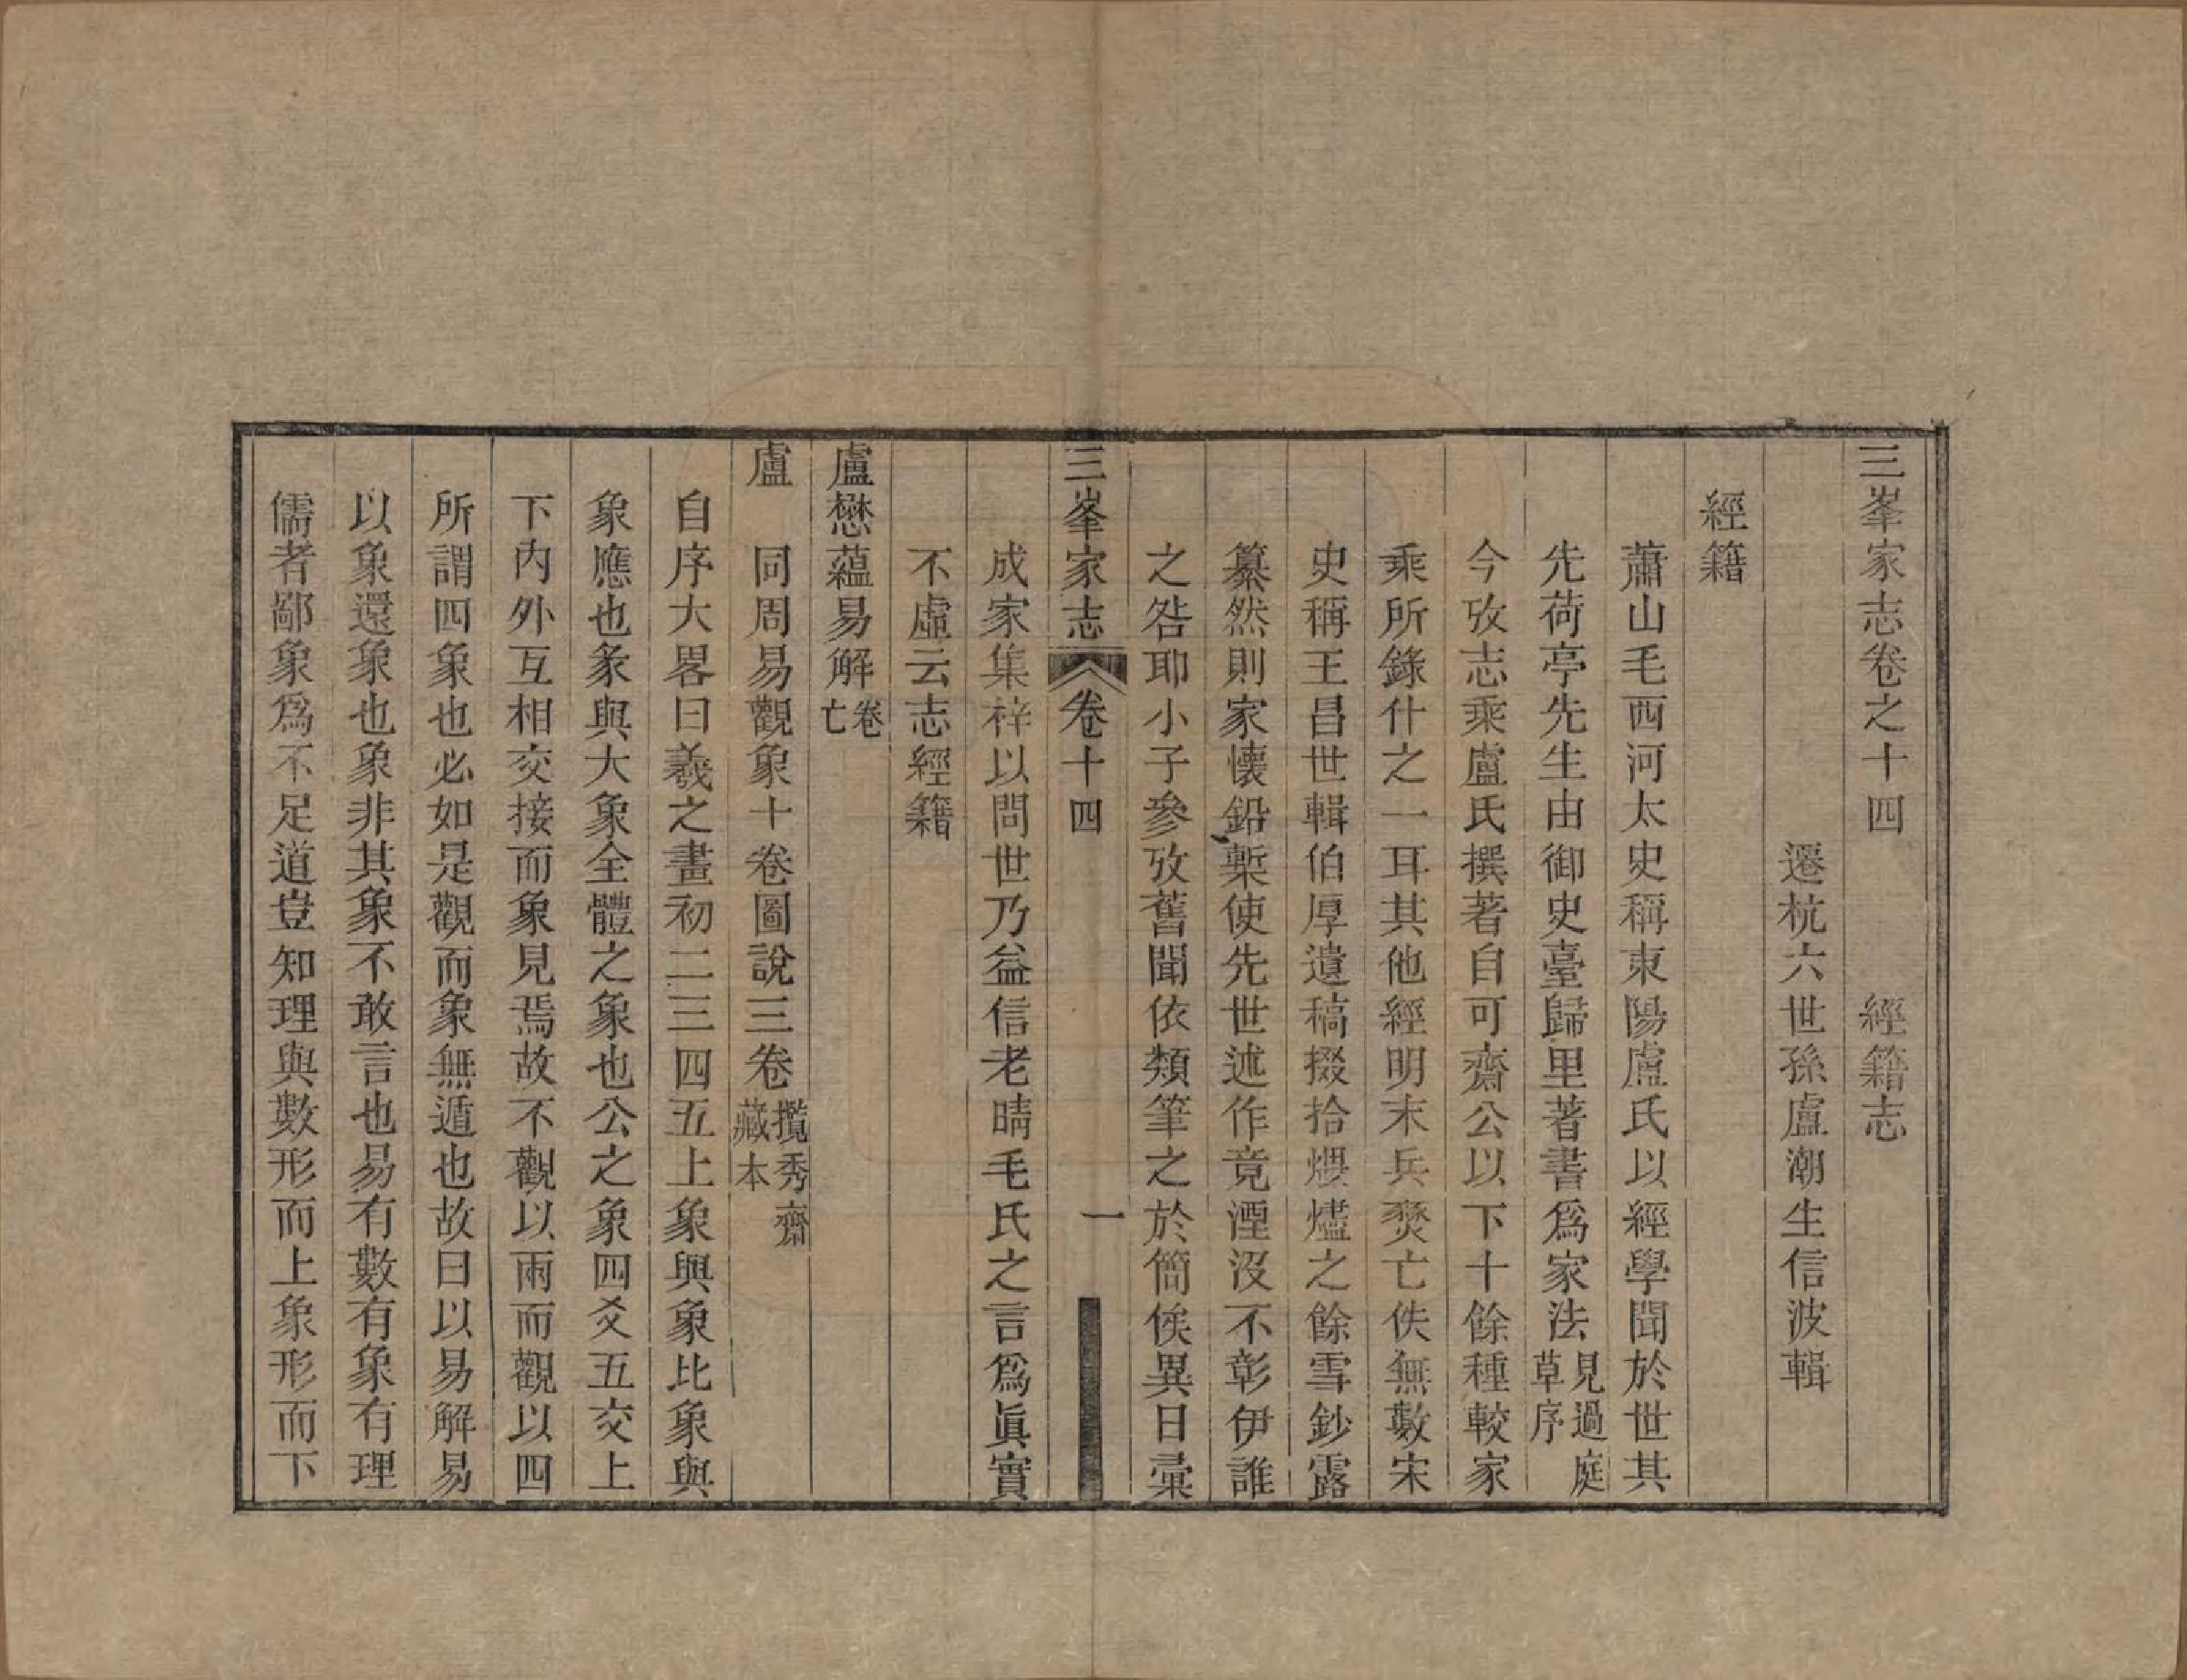 三峯家志卷之十四　經籍志
遷杭六世孫盧潮生信波輯
經籍
蕭山毛西河太史稱東陽盧氏以經學聞於世其
先荷亭先生由御史臺歸里著書爲家法見過庭草序
今攷志乘盧氏撰著自可齋公以下十餘種較家
乘所錄什之一耳其他經明末兵燹亡佚無數宋
史稱王昌世輯伯厚遺稿掇拾煨燼之餘雪鈔露
纂然則家懷鉛槧使先世述作竟湮沒不彰伊誰
之咎耶小子參攷舊聞依類筆之於簡俟異日彙
三峯家志　卷十四　一
成家集梓以問世乃益信老晴毛氏之言爲眞實
不虛云志經籍
盧懋蘊易解卷亡
盧　同周易觀象十卷圖說三卷攬秀齋藏本
自序大畧曰羲之畫初二三四五上象與象比象與
象應也彖與大象全體之象也公之象四爻五交上
下內外互相交接而象見焉故不觀以兩而觀以四
所謂四象也必如是觀而象無遁也故曰以易解易
以象還象也象非其象不敢言也易有數有象有理
儒者鄙象爲不足道豈知理與數形而上象形而下